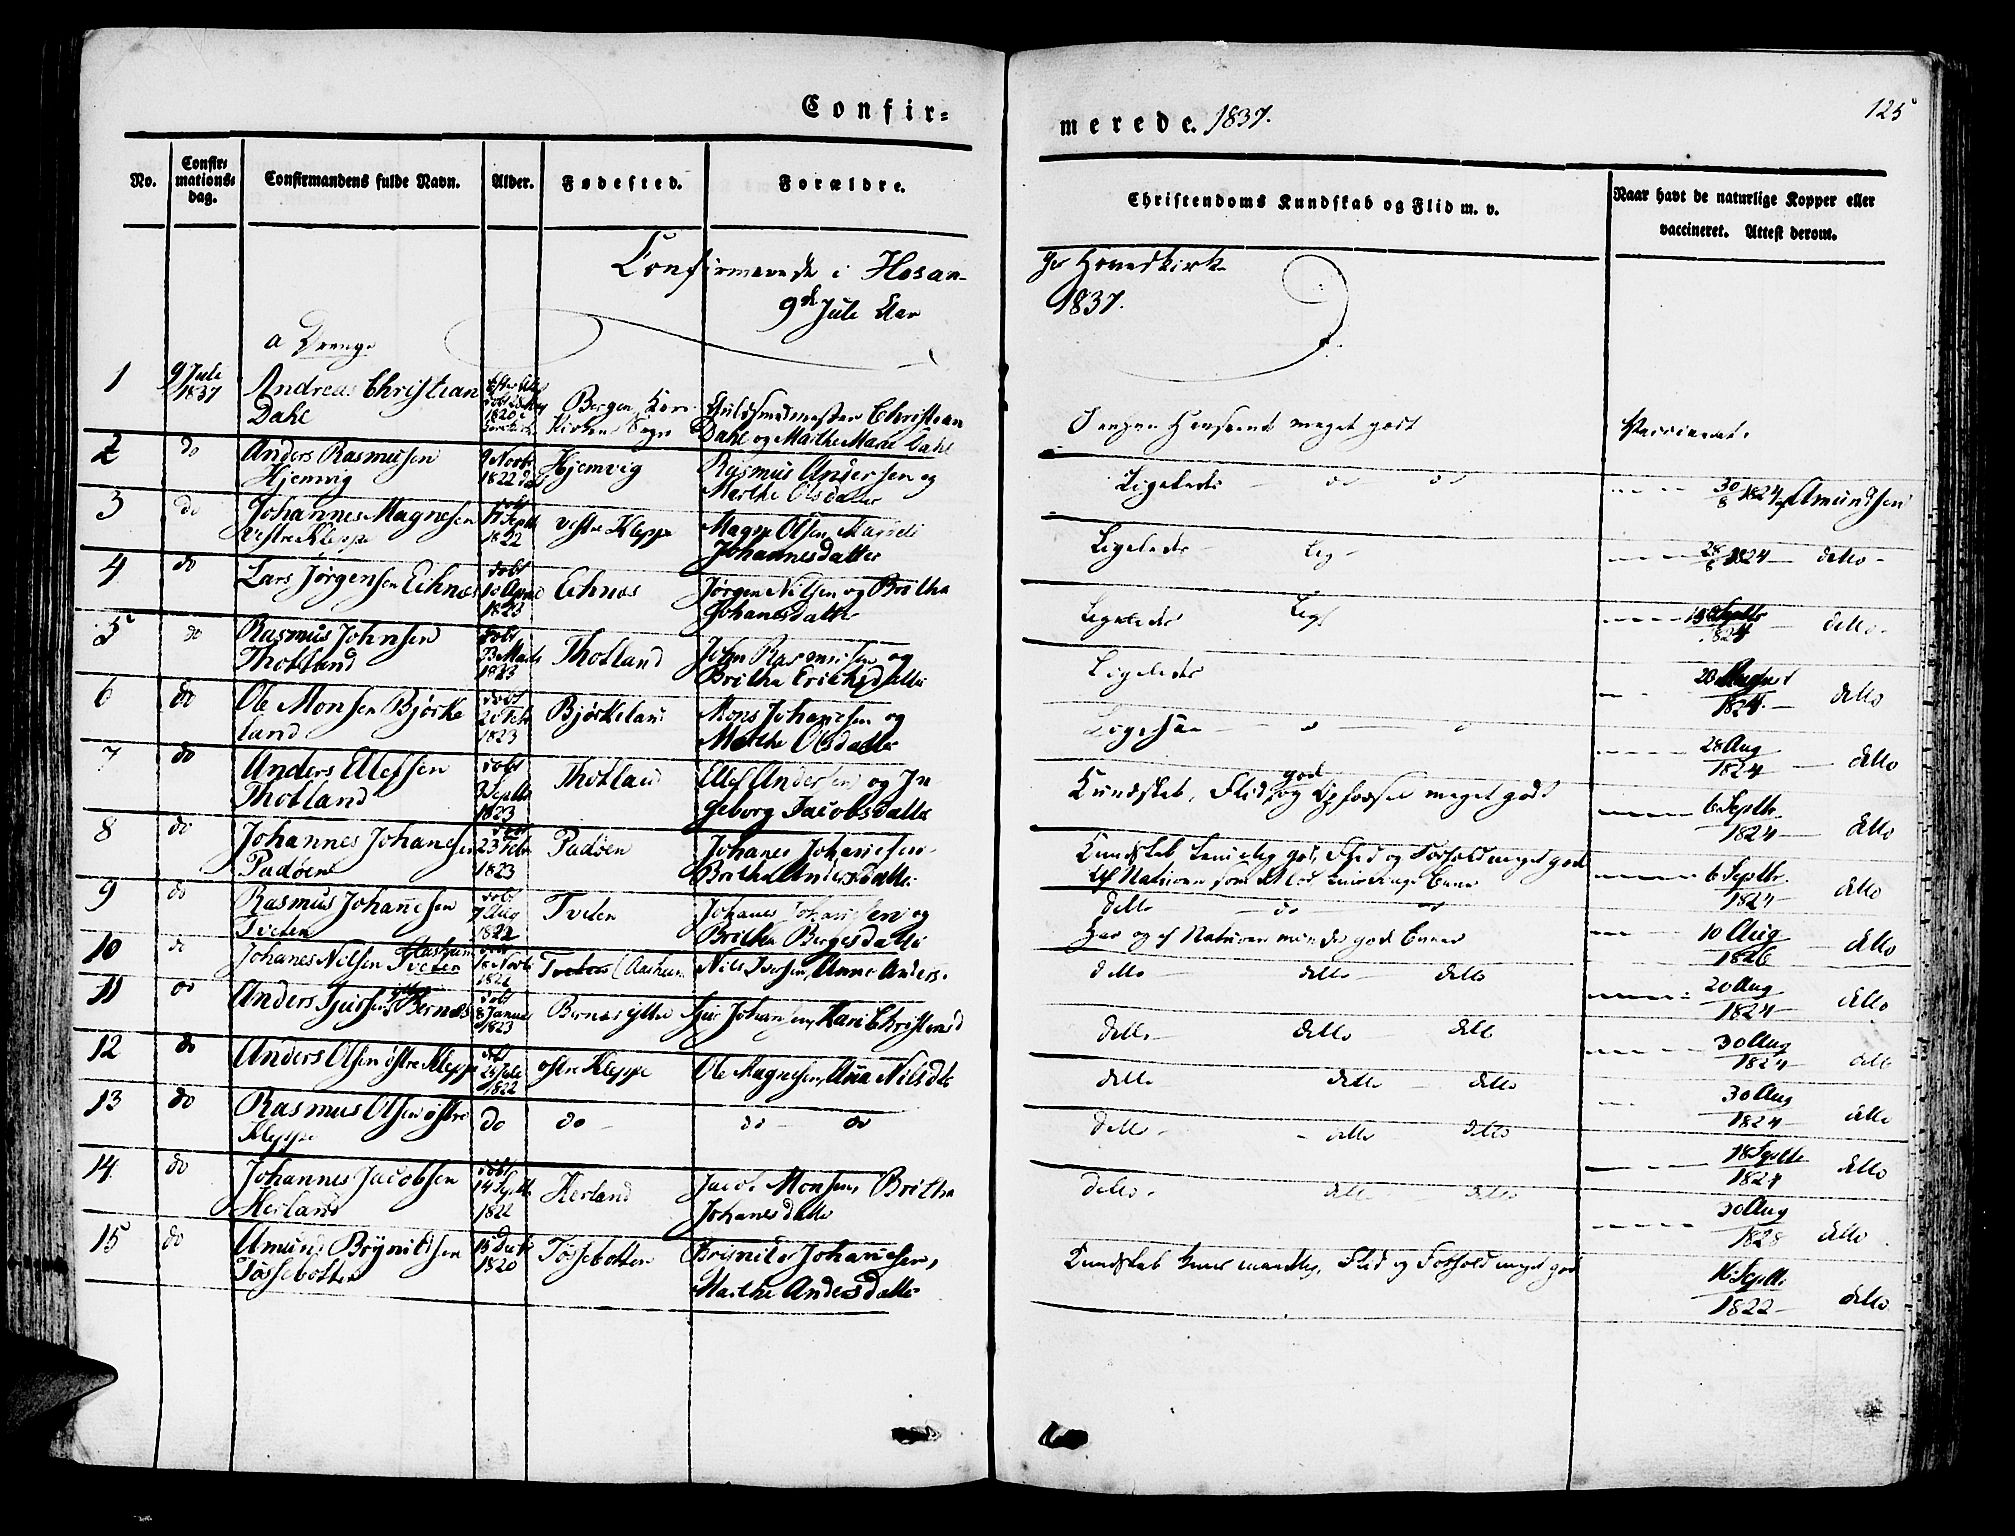 Confir=
merede. 1837.
125
No.
Confir=
mations=
dag.
Confirmandens fulde Navn.
Alder.
Fødested.
Forældre.
Christendoms Kundskab og Flid m. v.
Naar havt de naturlige Kopper eller
vaccineret. Attest derom.
Confirmerede i Hosan-
ger Hovedkirke
9de Jule Aar
1837.
a Drenge
1 9 Jule 1837 Andreas Christian
Dahl
1820
Bergen
Kirkens Sogn
Guldsmedmester Christian
Dahl og Marthe Marie Dahl
meget godt
Vaccineret.
2 do Anders Rasmusen
Hjemvig
9 Novbr
1822
Hjemvig
Rasmus Andersen og
Marthe Olsdatter
Ligeledes - do do
30/8 1824 Amundsen
3 do Johannes Magnesen
vestre Kleppe
17 Septb
1822
vestre Kleppe
Magne Olsen
Johannesdatter
Ligeledes - Lig-
28/8 1824 - detto -
4 do Lars Jørgensen Eihnæs
døbt
10 April
1823
Eihnæs
Jørgen Nilsen og Britha
Johanesdatter
Ligeledes Lig
18 Septbr
1824
detto -
5 do Rasmus Johnsen
Thotland
døbt
1823
Thotland
John Rasmusen og
Britha Erichsdatter
Ligeledes
20 August
1824 -
detto
6 do Ole Monsen Bjørke
land
døbt
20 Febr
1823
Bjørkeland
Mons Johanesen og
Marthe Olsdatter
Ligesaa - o - o
28 Aug
1824 -
detto
7 do Anders Ellefsen
Thotland
døbt
Septbr
1823
Thotland
Ellef Andersen og In
geborg Jacobsdatter
Kundskab, Flid god og Opførsel meget godt
6 Septbr
1824 -
detto
8 do Johannes Johanesen
Padøen
døbt
23 Febr
1823
Padøen
Johanes Johanesen
Britha Andersdatter
Kundskab temmelig god, Flid og Forhold meget god
Af Naturen
6 Septbr.
1824 -
detto
9 do Rasmus Johanesen
Tveten
døbt
7 Aug
1822
Tveten
Johanes Johanesen og
Britha Bergesdatter
detto - do - do
Har og af Naturen mindre gode Evner
10 Aug
1826
detto
10 do Johanes Nilsen Aasheim
Tveten
Novbr
1822
Tveten (Aasheim
Nils Iversen, Anna Anders.
detto detto detto
20 Aug
1824 -
detto
11 do Anders Sjursen ytre Bernæs
døbt
8 Januar
1823
Bernæs ytre
Sjur Johansen, Kari Christensd
detto - detto detto
30 Aug
1824 -
detto
12 do Anders Olsen østre Kleppe
døbt
Jule
1822
østre Kleppe
Ole Magnesen, Anna Nilsdtr
detto detto - detto
30 Aug
1824 -
detto
13 do Rasmus Olsen østre
Kleppe
do
do -
do - do
detto - - detto detto
18 Septbr
1824
detto
14 do Johannes Jacobsen
Herland
døbt
14 Septbr
1822
Herland
Jacob Monsen, Britha
Johanesdatter
detto - detto - detto
30 Aug
1828
detto
15 do Amund Brynildsen
Tøssebotten
1820
Tøssebotten
Brynild Johanesen,
Marthe Andersdatter
Kundskab, Flid og Forhold meget god
16 Septbr
1822 -
detto